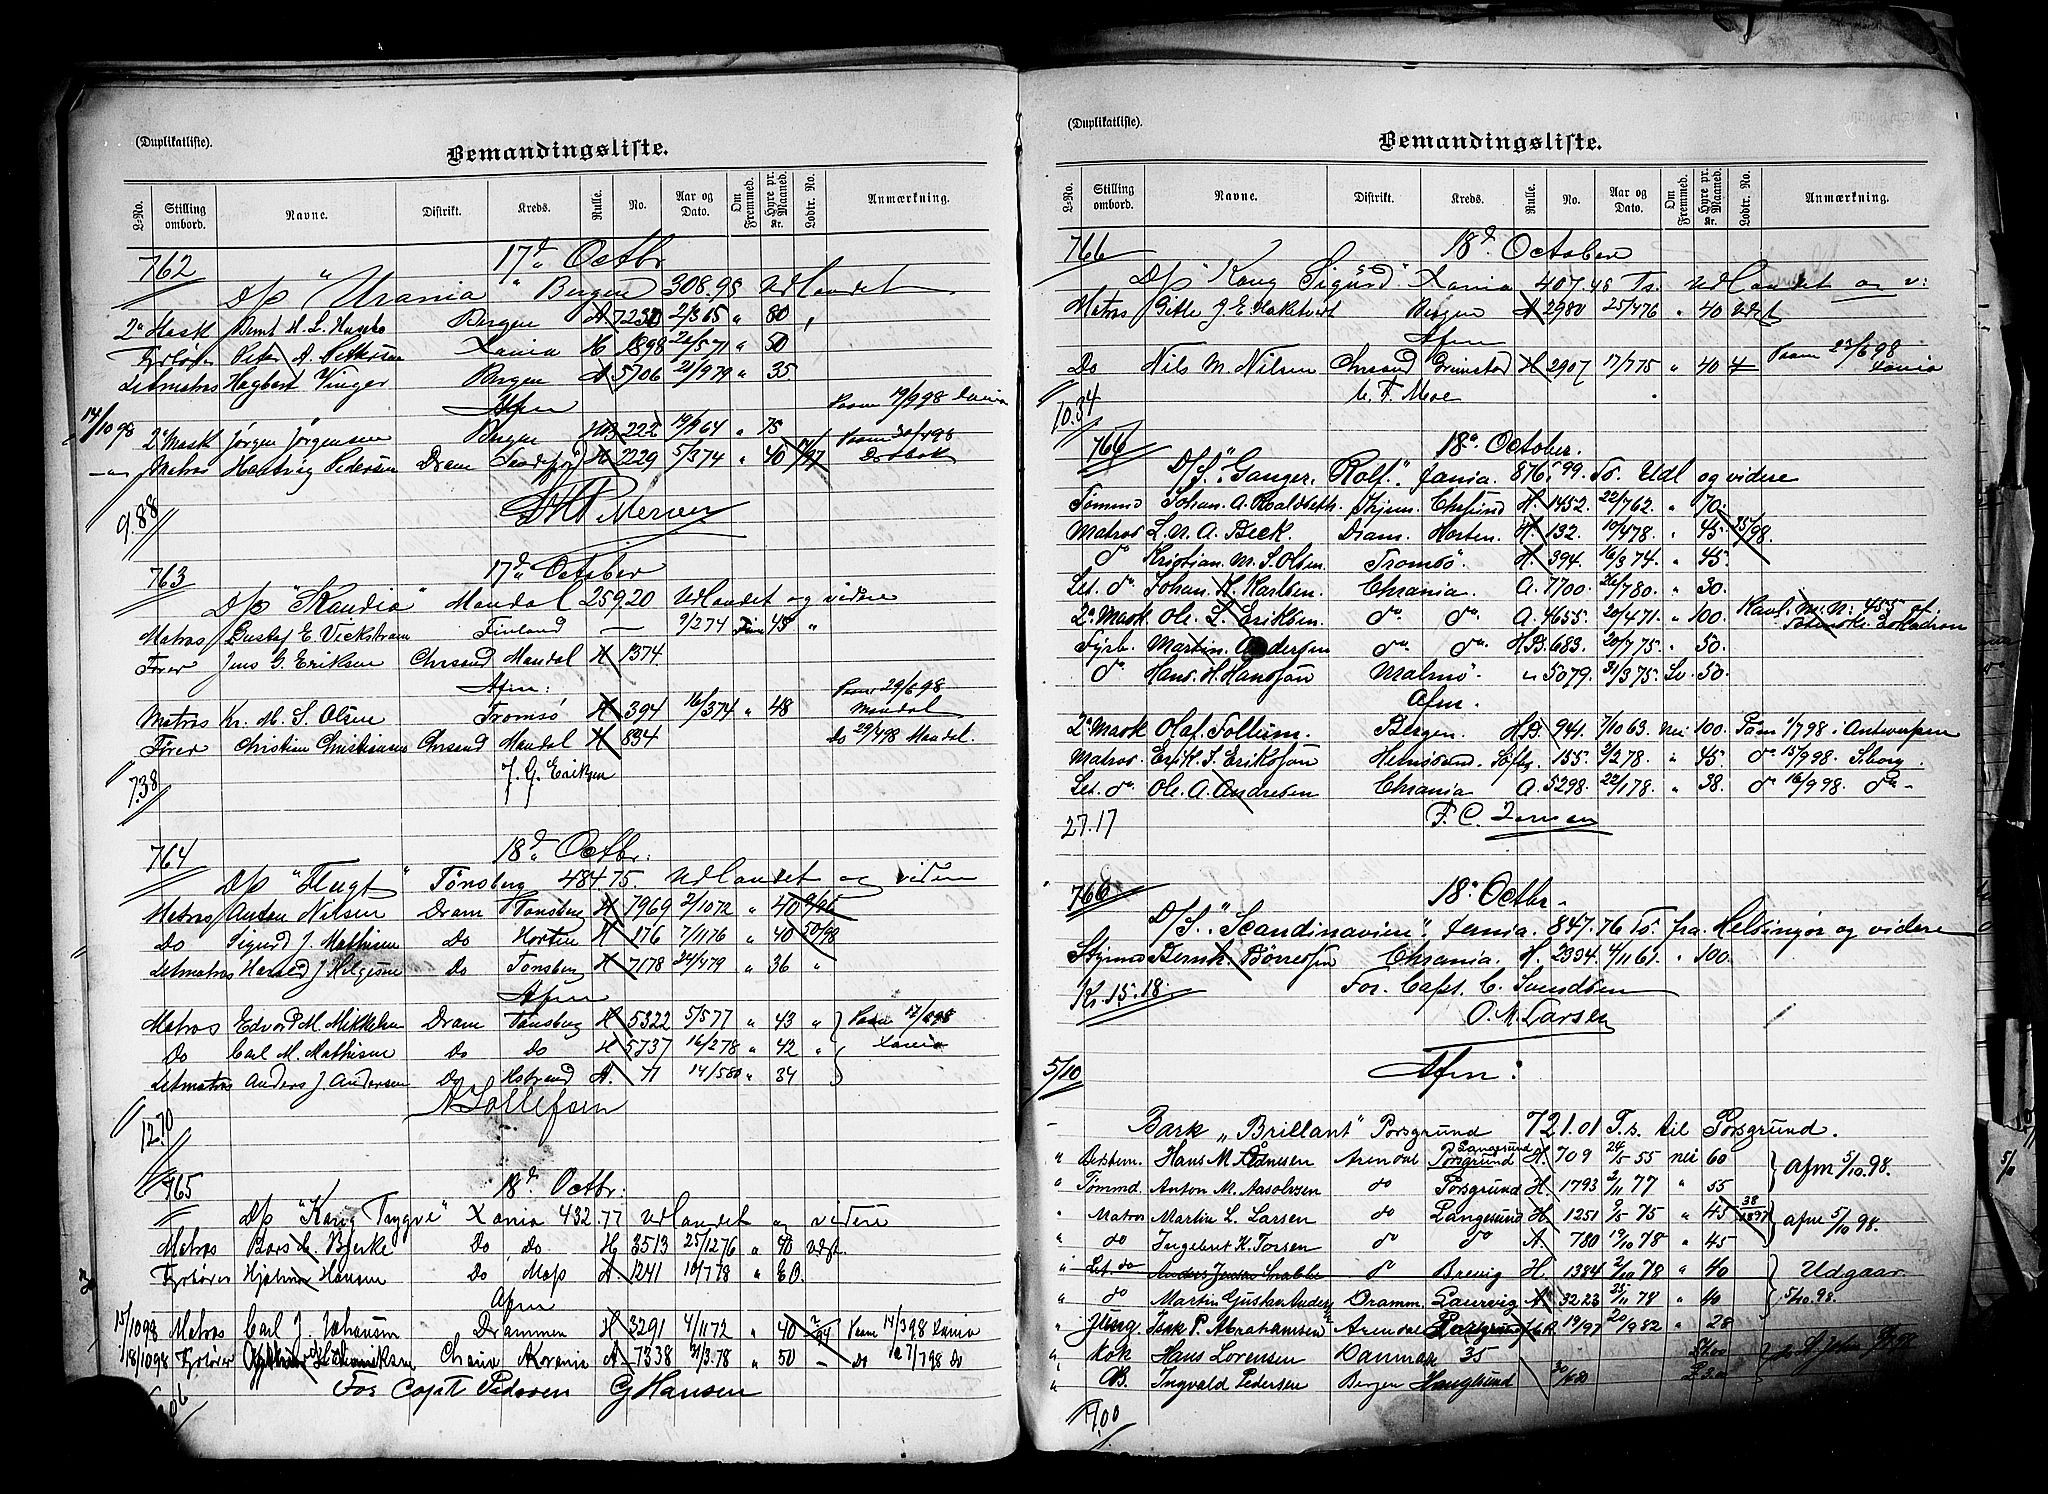 (Duplikatliste).
Bemandingsliste.
L-No. Stilling ombord. Navne. Distrikt. Kreds. Rulle. No. Aar og Dato. Om Fremmed. Hyre pr. Maaned. Kr. Lodtr. No. Anmærkning.
762 17d Octbr
D/p "Urania" Bergen 308.95 Udlandet
2d Mask Bernt H. L. Bergen A 7230 2/3 65 " 80
Fyrbøter Peter A. Xania H 1898 5 71 " 50
Letmatros Hagbart Vinger Bergen A 5706 21/9 79 " 35.
Afm Paam 19/9 98 Xania
14/10 98 2d Mask Jørgen Jørgensen Bergen 222 19/9 64 " 75 Paam
Matros Hartvig Pedersen Dram H 2229 5/3 74 " 40 97
9.88
763 17d October
D/p "Skandia" Mandal 259.20 Udlandet og videre
Matros Gustaf E Vickstrøm Finland — 9/2 74 Fin 45 "
Fører Jens G. Eriksen Chrsand Mandal H 1374
Afm: Paam 29/6 98
Matros Kr. M. S. Olsen Tromsø H 394 16/3 74 " 48 Mandal
Fører Christian Christiansen Chrsand Mandal H 834 Do 29/4 98 Mandal.
J. G. Eriksen
7.38
764 18d Octbr:
D/p "Flugt" Tønsberg 484.75. Udlandet og videre
Matros Anton Nilsen Dram Tønsberg H 7969 2/10 72 " 40
Do Sigurd J. Mathisen Do Horten H 176 7/11 76 " 40 50/98
Letmatros Harald J Helgesen Do Tønsberg H 7178 24/4 79 " 36 "
Afm
Matros Edvard M. Mikkelsen Dram Tønsberg H 5322 5/5 77 " 43 " Paam
Do Carl M. Mathisen Do Do H 5737 16/2 78 " 42 " Xania
Letmatros Anders J. Andersen Do Hstrand A. 71 14/5 80 " 34
A Tollefsen
12.70
765 18d Octbr:
D/p "Kong Trygve" Xania 432.77 Udlandet og videre
Matros Bors C. Bjerke Do Do H 3513 25/12 76 " 40
Fyrbøter Hjalmar Hansen Do Moss A 1241 10/7 78 "
Afm
15/10 98 Matros Carl J. Johansen Drammen H 3291 4/11 72 " 40 Paam 14/3 98 Xania
18/10 98 Fyrbøter Chania A 7338 3 78 " 50 — Do 98 Do
For Capt Pedersen G Hansen
(Duplikatliste).
Bemandingsliste.
L-No. Stilling ombord. Navne. Distrikt. Kreds. Rulle. No. Aar og Dato. Om Fremmed. Hyre pr. Maaned. Kr. Lodtr. No. Anmærkning.
766 18d October
D/p "Kong Sigurd" Xania 407.46 Ts. Udlandet og v:
Matros Gitle J. E. Bergen A 2980 25/4 76 " 40
Afm
Do Nils N. Nilsen Chrsand Grimstad H 2907 17/7 75 " 40 Paam 23/6 98 Xania
C. F. Moe
10.34
766 18d October.
D/S. "Ganger Rolf." Xania. 876.99. To. Udl og videre
Tømmd Johan. A. H. 1452. 22/7 62. " 70.
Matros L. N. A. Beck. Dram. Horten. H. 132. 10/4 78. " 45. 98.
do Kristian M. S. Olsen. Tromsø. H. 394. 16/3 74. " 45.
Let. do Johan H. Karlsen. Chrania. A. 7700. 26/7 80. " 30.
2d Mask Ole. L. Eriksen. do do A. 4655. 20/4 71. " 100.
Fyrb. Martin. Andersen do do H.B. 683. 20/7 75. " 50.
do Hans. H. Hansson Malmø. " 5079. 31/3 75. Sv. 50.
Afm.
2d Mask Olaf. Tollum. Bergen. H.B. 944. 7/10 63. nei 100. Paam 1/7 98. i Antwerpen
Matros. Erik. J. Eriksson 155. 2/2 78. " 45. do 15/9 98. Sborg.
Let. do. Ole. A. Andresen Chrania A. 5298. 22/1 78. " 38. do 16/9 98. do
F. C. Jensen
27.17
766 18d Octbr.
D/S. "Scandinavien". Xania. 847.76 To. fra. Helsingør og videre
Styrmd Bernh. Børresen Chrania. H. 2334. 4/11 61. " 100.
Kr. 15.18. For. Capt. C. Svendsen
O. M. Larsen
5/10 Afm:
Bark "Brillant" Porsgrund 721.01 T.s. til Porsgrund.
" Bestem. Hans M. Arendal Langesund Porsgrund H. 709 24/5 55 nei 60 afm 5/10 98.
" Tømmd. Anton M. Aasolvsen do Porsgrund H. 1793 2/11 77 " 55
" Matros Martin L. Larsen do Langesund H. 1251 9/5 75 " 45 38/1897 afm 5/10 98.
" do Ingebret K. Torsen do do A. 780 19/10 78 " 45
" Let. do Anders Jensen do Brevig H. 1384 2/10 78 " 40 Udgaar.
" do Martin Gustav Anders Dramm. Laurvig A. 3223 25/11 78 " 40 5/10 98.
" Jung Isak P. Abrahamsen Arendal Porsgrund 19/97 20/9 82 " 28
" Kok Hans Lorensen Danmark 35
" B. Ingvald Pedersen Bergen Haugesund 30/6 80
9.00